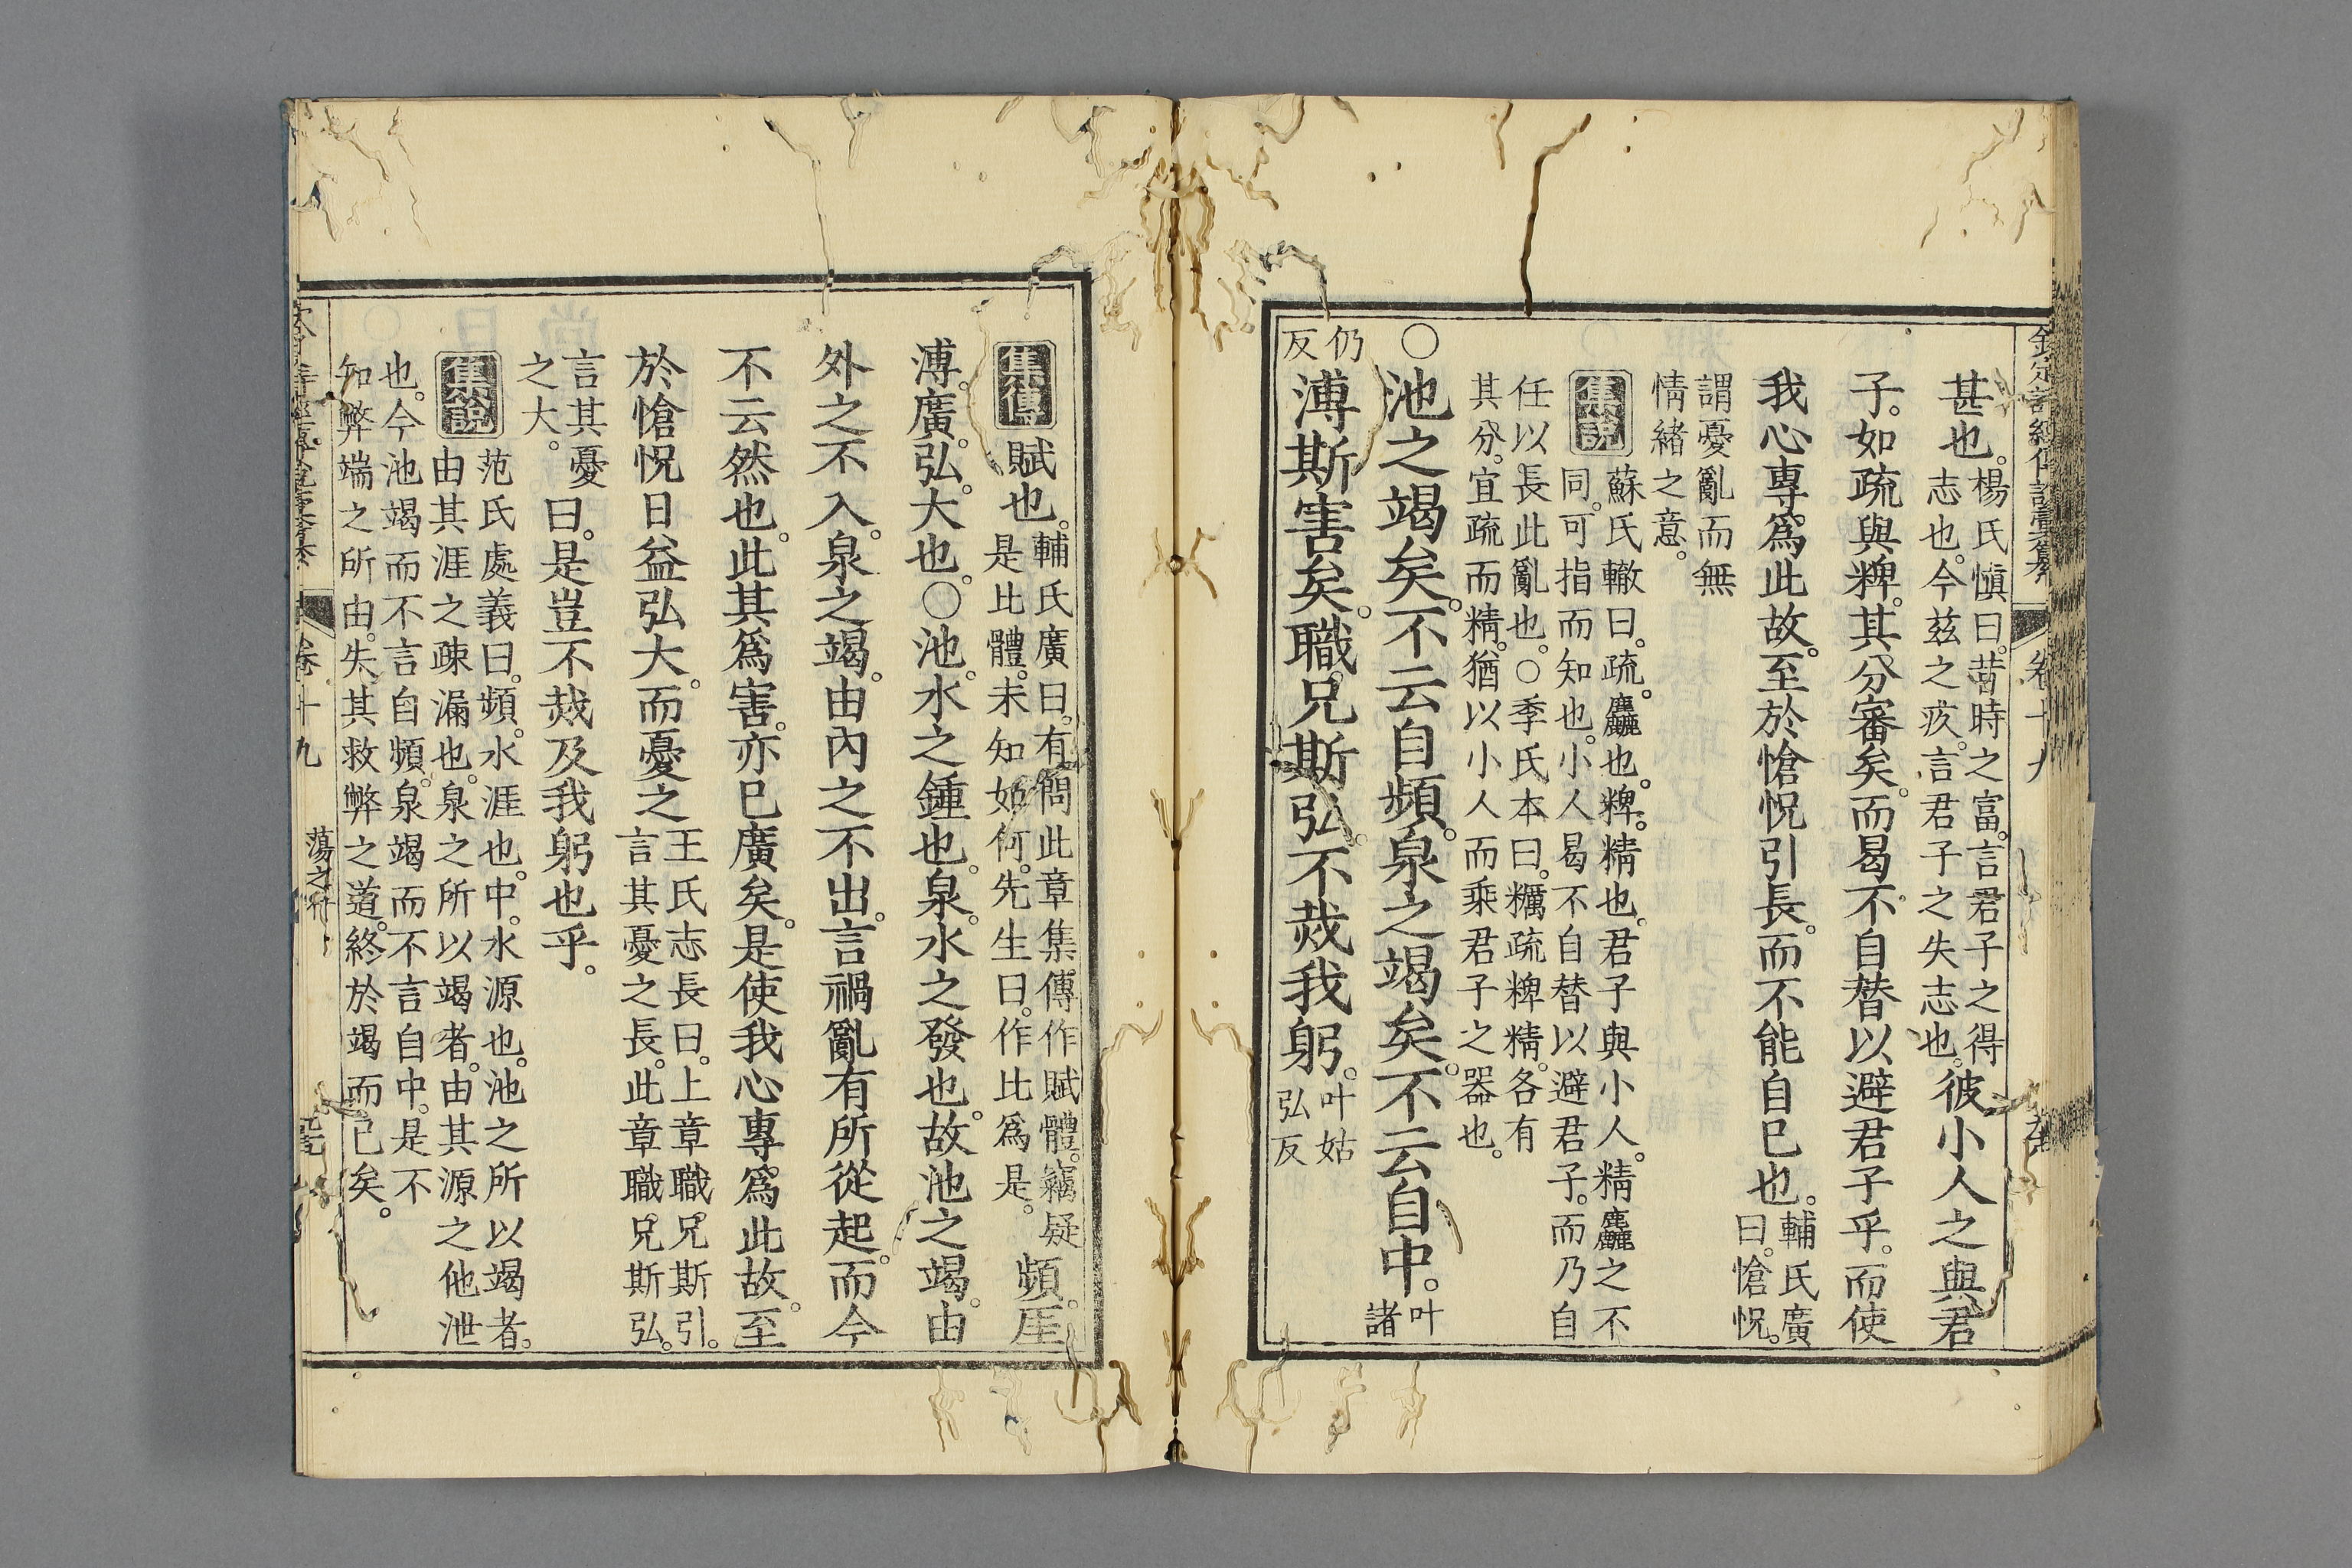 甚也。楊氏愼曰。昔時之富。言君子之得
志也。今兹之疚。言君子之失志也。彼小人之與君
子。如疏與粺。其分審矣。而曷不自替以避君子乎。而使
我心專爲此故。至於愴怳引長。而不能自已也。輔氏廣
曰。愴怳。
謂憂亂而無
情緒之意。
集說 蘇氏轍曰。疏。麤也。粺。精也。君子與小人。精麤之不
同。可指而知也。小人曷不自替以避君子。而乃自
任以長此亂也。○季氏本曰。糲疏粺精。各有
其分。宜疏而精。猶以小人而乘君子之器也。
○池之竭矣。不云自頻。泉之竭矣。不云自中。叶諸
仍反
溥斯害矣。職兄斯弘。不烖我躬。叶姑
弘反
集傳 賦也。輔氏廣曰。有問此章集傳作賦體。竊疑
是比體。未知如何。先生曰。作比爲是。頻。厓
溥。廣。弘。大也。○池。水之鍾也。泉。水之發也。故池之竭。由
外之不入。泉之竭。由內之不出。言禍亂有所從起。而今
不云然也。此其爲害。亦已廣矣。是使我心專爲此故。至
於愴怳日益弘大。而憂之王氏志長曰。上章職兄斯引。
言其憂之長。此章職兄斯弘。
言其憂
之大。曰。是豈不烖及我躬也乎。
集說 范氏處義曰。頻。水涯也。中。水源也。池之所以竭者。
由其涯之疎漏也。泉之所以竭者。由其源之他泄
也。今池竭而不言自頻。泉竭而不言自中。是不
知弊端之所由。失其救弊之道。終於竭而已矣。
卷十九
蕩之什